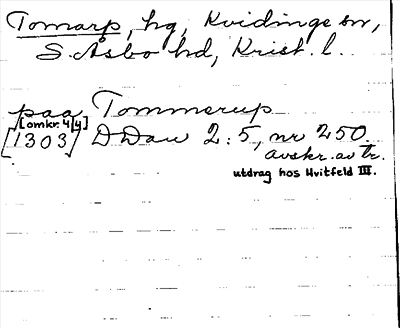 Tomarp, hg, Kvidinge sn,
S. Åsbo hd, Krist. l.
paa Tommerup
[omkr. 4/4]
[1303] D Dan 2:5, nr 250
avskr. av tr.
utdrag hos Hvitfeld III.